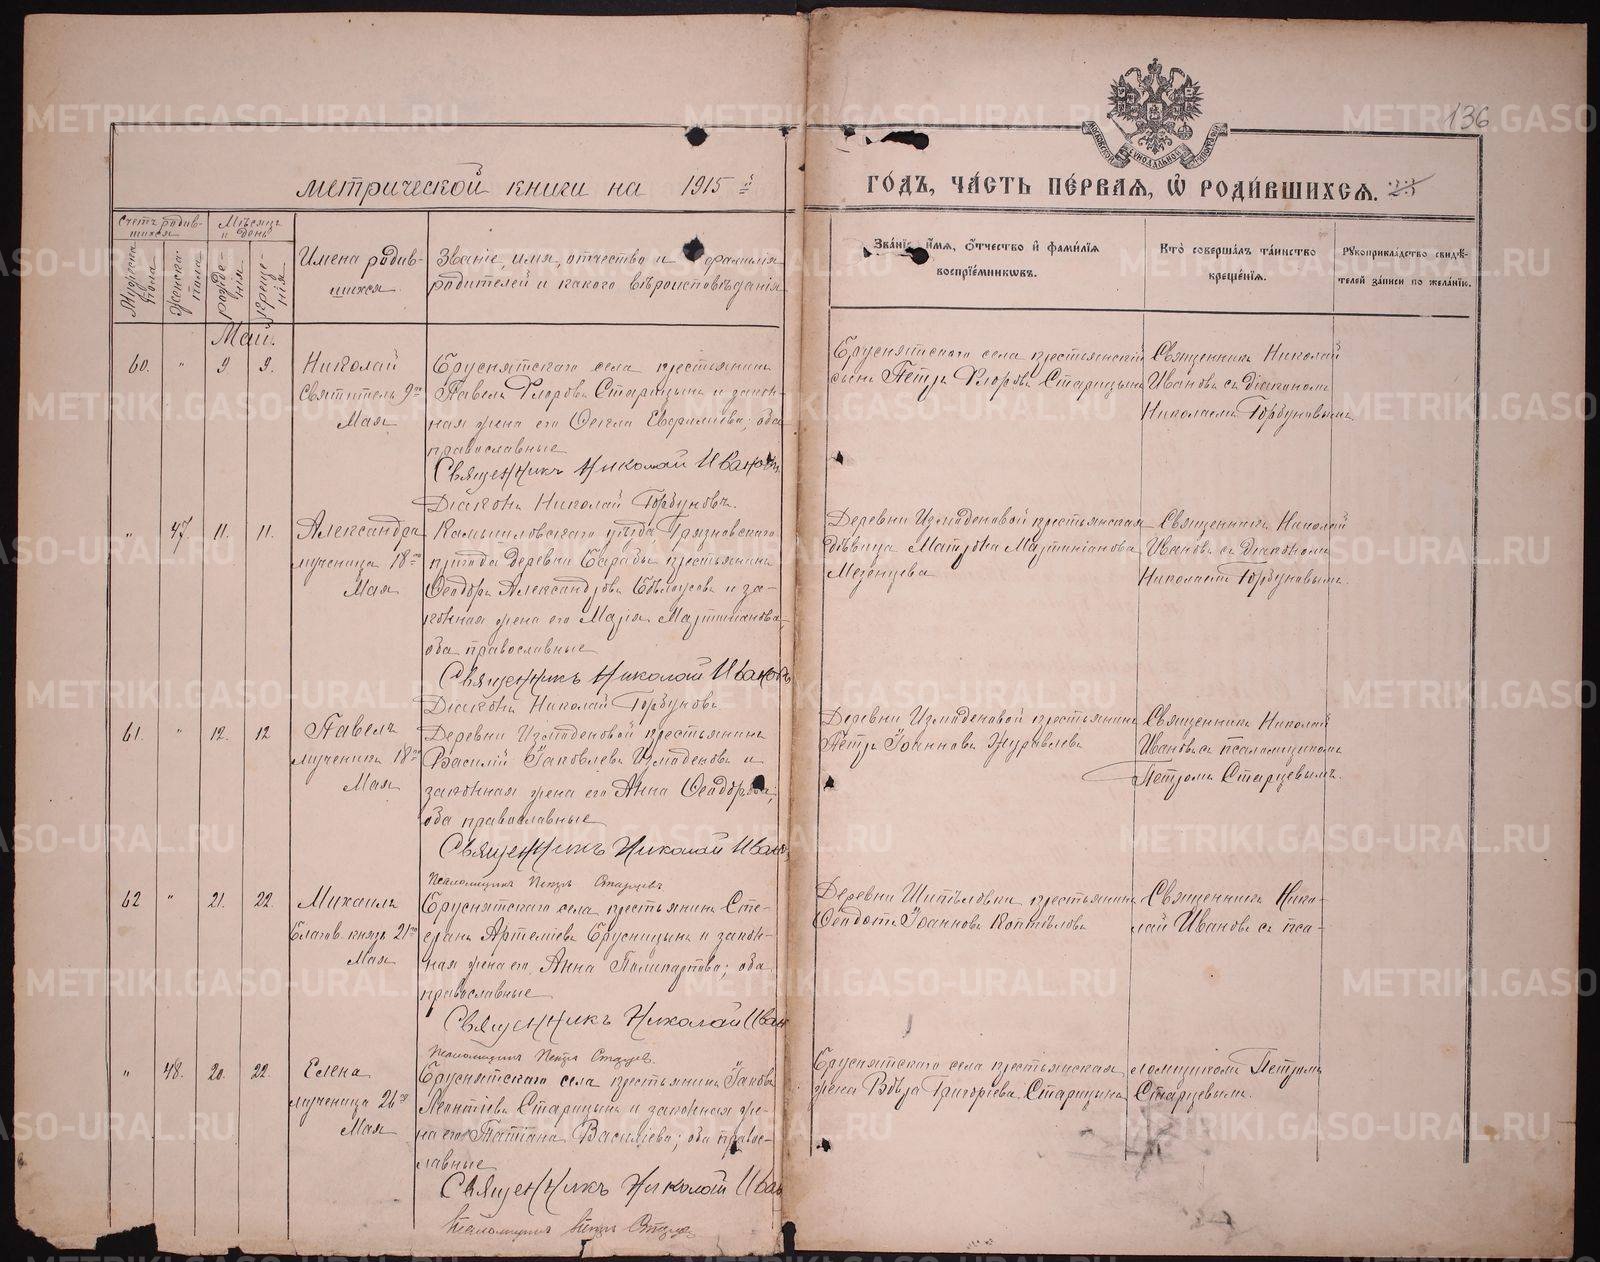 136
метрической книги на 1915 й
ГО́ДЪ, ЧА́СТЬ ПЕ́РВАЯ, Ѡ҆ РОДИ́ВШИХСЯ. 25
МОСКОВСКОЙ СѴНОДАЛЬНОЙ ТИПОГРАФІИ
Счетъ родив-
шихся
Мѣсяцъ
и день
Мужеска
пола
Женска
пола
рожде-
нія
креще-
нія
Имена родив-
шихся
Званіе, имя, отчество и фамилія
родителей и какого вѣроисповѣданія
Зва́нїе, и҆́мя, ѻ҆́тчество и҆ фами́лїя
воспрїе́мникѡвъ.
Кто̀ соверша́лъ та́инство
креще́нїя.
Рꙋкоприкла́дство свидѣ́-
телей за́писи по жела́нїю.
Май.
60. " 9 9.
Николай
Святитель 9го
Мая
Бруснятскаго села крестьянинъ
Павелъ Флоровъ Старицынъ и закон-
ная жена его Ѳекла Евфиміева; оба
православные
Священникъ Николай Ивановъ
Діаконъ Николай Горбуновъ.
Бруснятскаго села крестьянскій
сынъ Петръ Флоровъ Старицынъ
Священникъ Николай
Ивановъ съ діакономъ
Николаемъ Горбуновымъ
" 47 11. 11.
Александра
мученица 18го
Мая
Камышловскаго уѣзда Грязновскаго
прихода деревни Барабы крестьянинъ
Ѳеодоръ Александровъ Бѣлоусовъ и за-
конная жена его Марія Мартиніанова,
оба православные
Священникъ Николай Ивановъ
Діаконъ Николай Горбуновъ
Деревни Измоденовой крестьянская
дѣвица Матрона Мартиніанова
Мезенцева
Священникъ Николай
Ивановъ съ діакономъ
Николаемъ Горбуновымъ.
61. " 12. 12
Павелъ
мученикъ 18го
Мая
Деревни Измоденовой крестьянинъ
Василій Іаковлевъ Измоденовъ и
законная жена его Анна Ѳеодорова;
оба православные
Священникъ Николай Иван
Псаломщикъ Петръ Старцевъ
Деревни Измоденовой крестьянинъ
Петръ Іоанновъ Журавлевъ
Священникъ Николай
Ивановъ съ псаломщикомъ
Петромъ Старцевымъ.
62 " 21. 22.
Михаилъ
Благов. князь 21го
Мая
Бруснятскаго села крестьянинъ Сте-
фанъ Артеміевъ Брусницынъ и закон-
ная жена его, Анна Поликарпова; оба
православные
Священникъ Николай Иван
Псаломщикъ Петръ Старцев.
Деревни Шипѣловки крестьянинъ
Ѳеодотъ Іоанновъ Коптѣловъ
Священникъ Нико-
лай Ивановъ съ пса-
" 48. 20. 22.
Елена
мученица 26го
Мая
Бруснятскаго села крестьянинъ Іаковъ
Леонтіевъ Старицынъ и законная же-
на его Татіана Василіева; оба правос-
лавные
Священникъ Николай Иван
Псаломщикъ Петръ Старце
Бруснятскаго села крестьянская
жена Вѣра Григоріева Старицына
ломщикомъ Петромъ
Старцевымъ.
METRIKI.GASO-URAL.RU